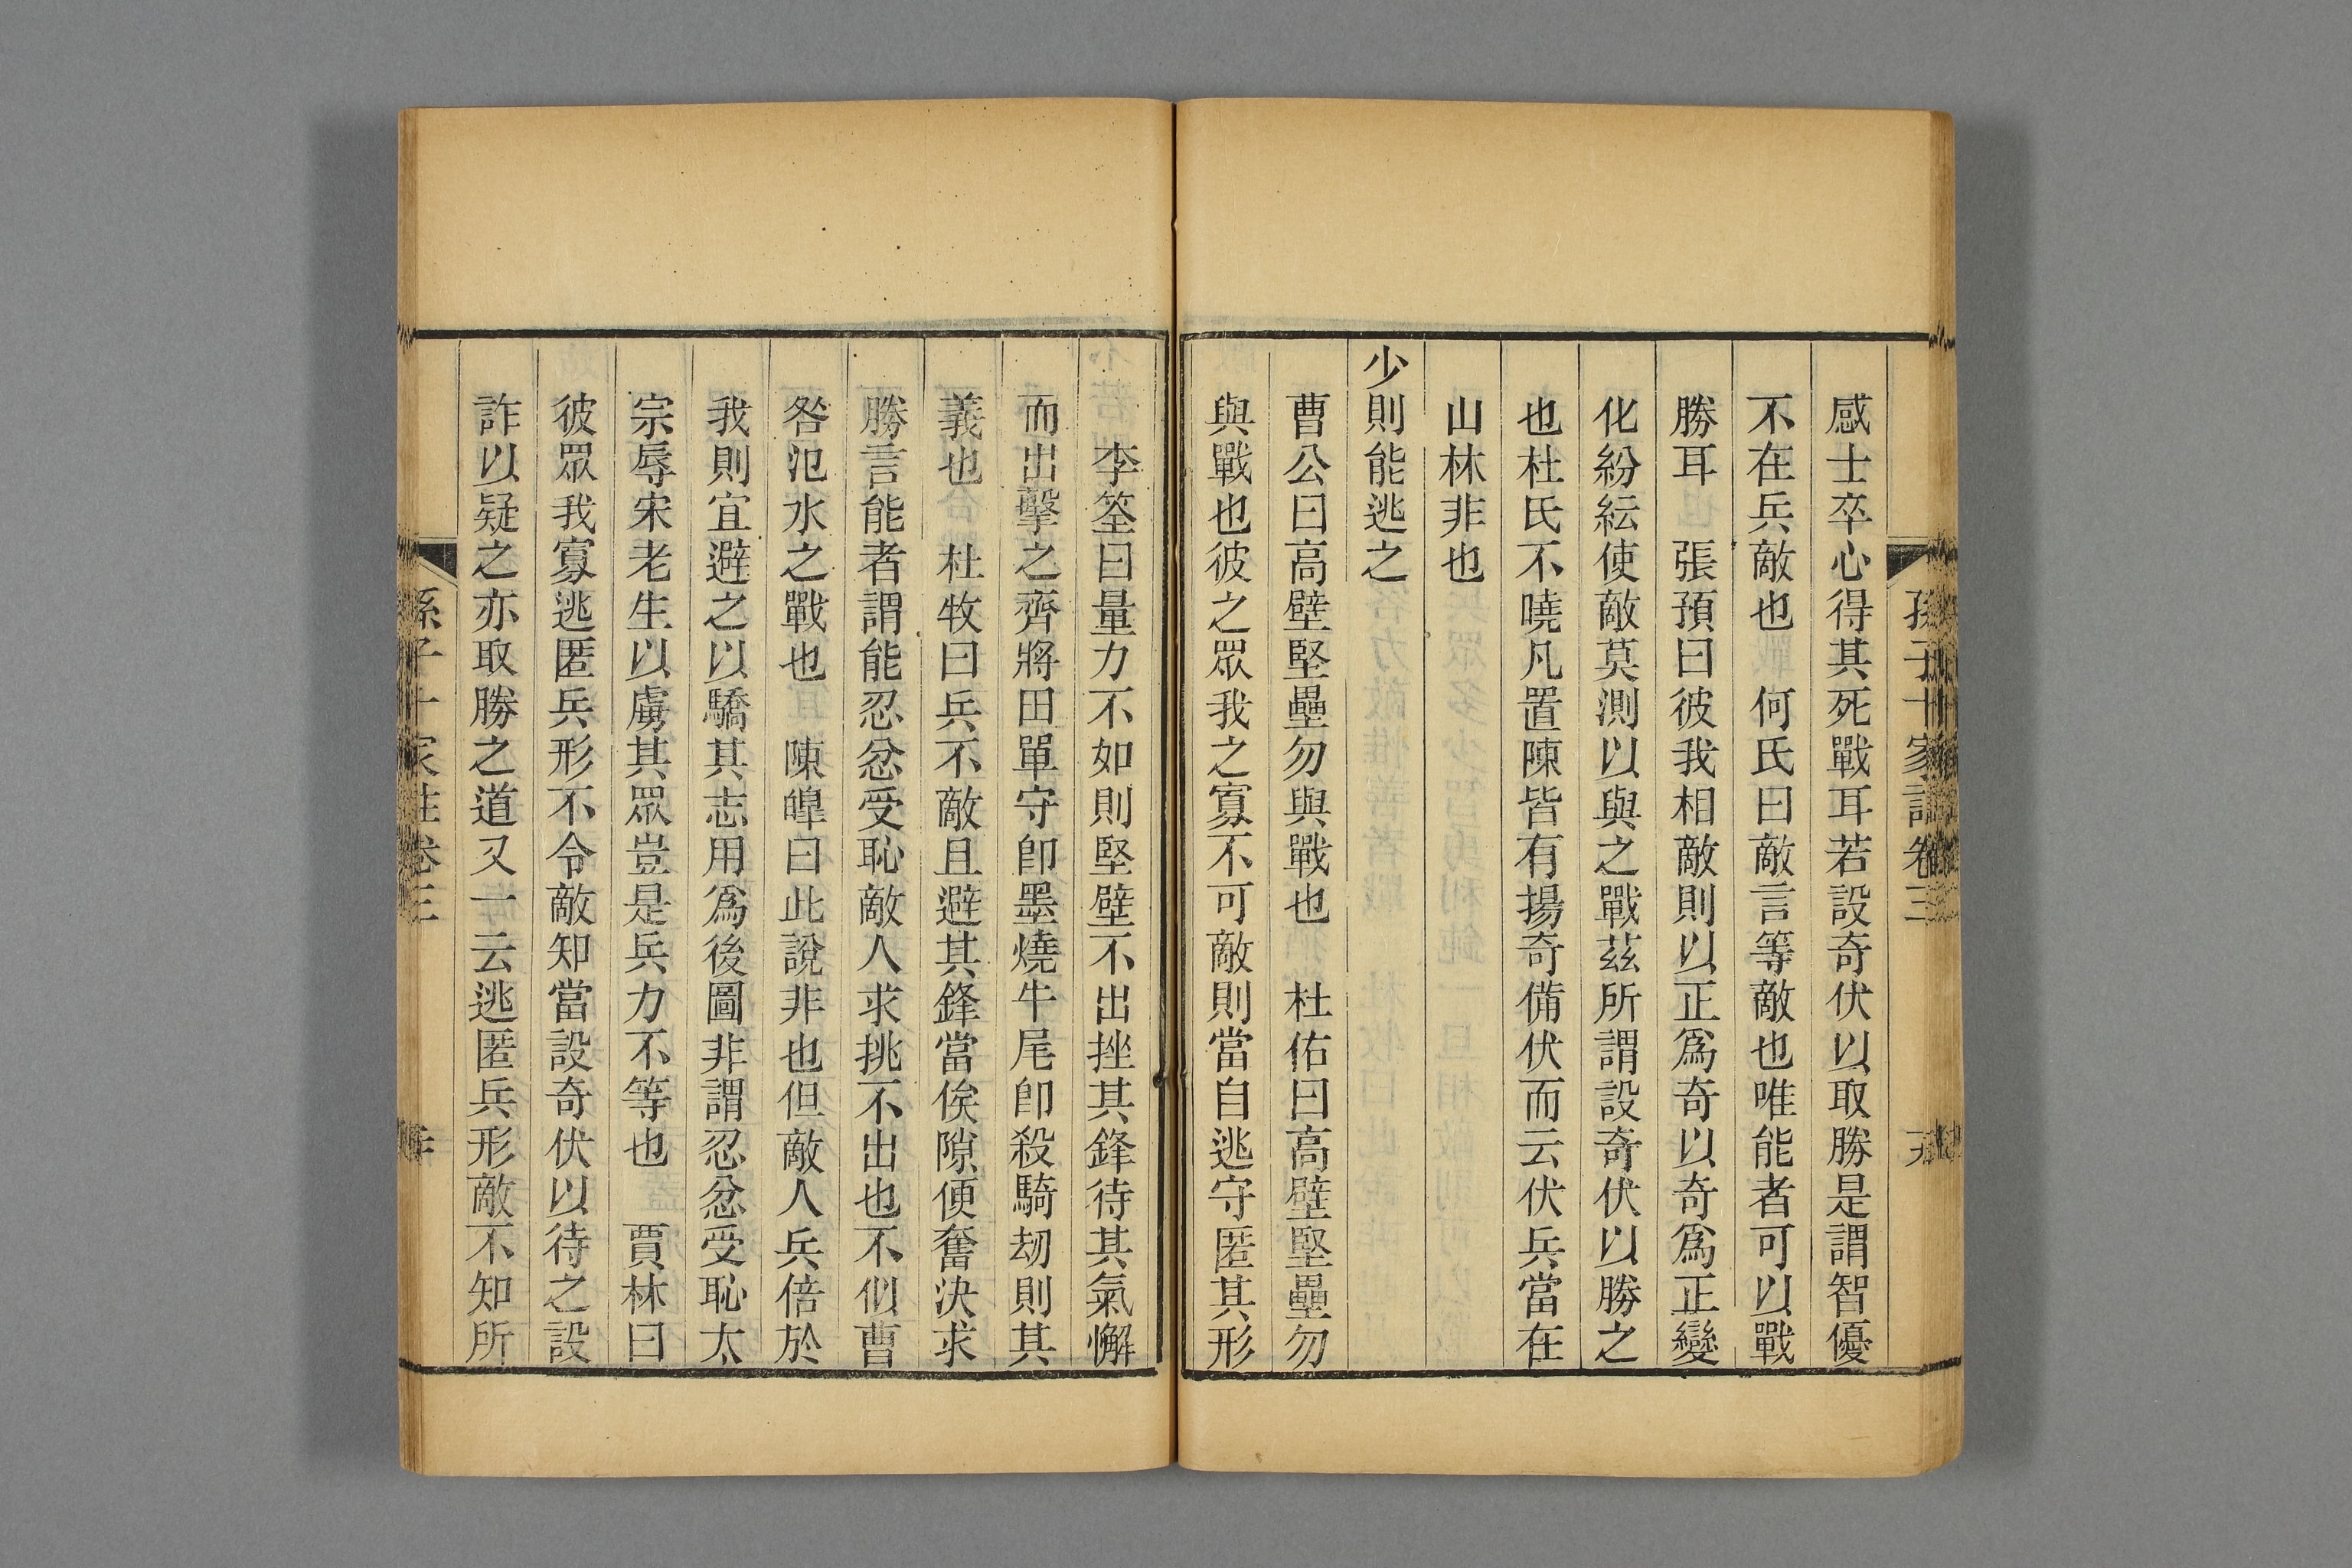 孫子十家註卷三
感士卒心得其死戰耳若設奇伏以取勝是謂智優
不在兵敵也　何氏曰敵言等敵也唯能者可以戰
勝耳　張預曰彼我相敵則以正爲奇以奇爲正變
化紛紜使敵莫測以與之戰茲所謂設奇伏以勝之
也杜氏不曉凡置陳皆有揚奇備伏而云伏兵當在
山林非也
少則能逃之
曹公曰高壁堅壘勿與戰也　杜佑曰高壁堅壘勿
與戰也彼之眾我之寡不可敵則當自逃守匿其形
李筌曰量力不如則堅壁不出挫其鋒待其氣懈
而出擊之齊將田單守卽墨燒牛尾卽殺騎刼則其
義也　杜牧曰兵不敵且避其鋒當俟隙便奮決求
勝言能者謂能忍忿受恥敵人求挑不出也不似曹
咎汜水之戰也　陳皥曰此說非也但敵人兵倍於
我則宜避之以驕其志用爲後圖非謂忍忿受恥太
宗辱宋老生以虜其眾豈是兵力不等也　賈林曰
彼眾我寡逃匿兵形不令敵知當設奇伏以待之設
詐以疑之亦取勝之道又一云逃匿兵形敵不知所
孫子十家註卷三